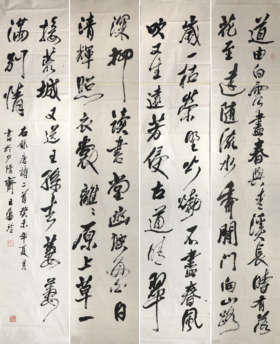 道由白雲盡春與青溪長時有落
花至遠随流水香閒門向山路
歲一枯榮野火燒不盡春風
吹又生遠芳侵古道晴翠
深柳讀書堂幽映每白日
清輝照衣裳離離原上草一
接荒城又送王孫去萋萋
滿別情
右録唐詩二首癸未年夏月